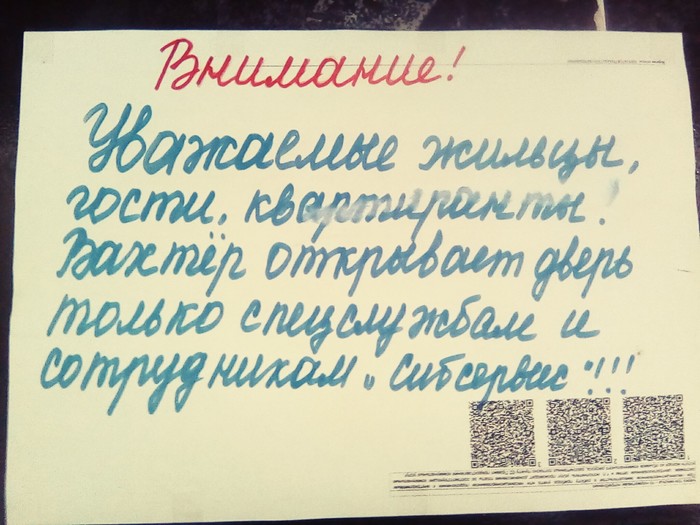 Внимание!
Уважаемые жильцы,
гости, квартиранты!
Вахтёр открывает дверь
только спецслужбам и
сотрудникам „Сибсервис"!!!